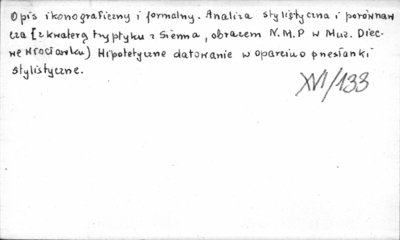 Opis ikonograficzny i formalny. Analiza stylistyczna i porównaw
cza [z kwaterą tryptyku z Sienna, obrazem N.M.P w Muz. Diec.
we Włocławku) Hipotetyczne datowanie w oparciu o przesłanki
stylistyczne.
XVI/133